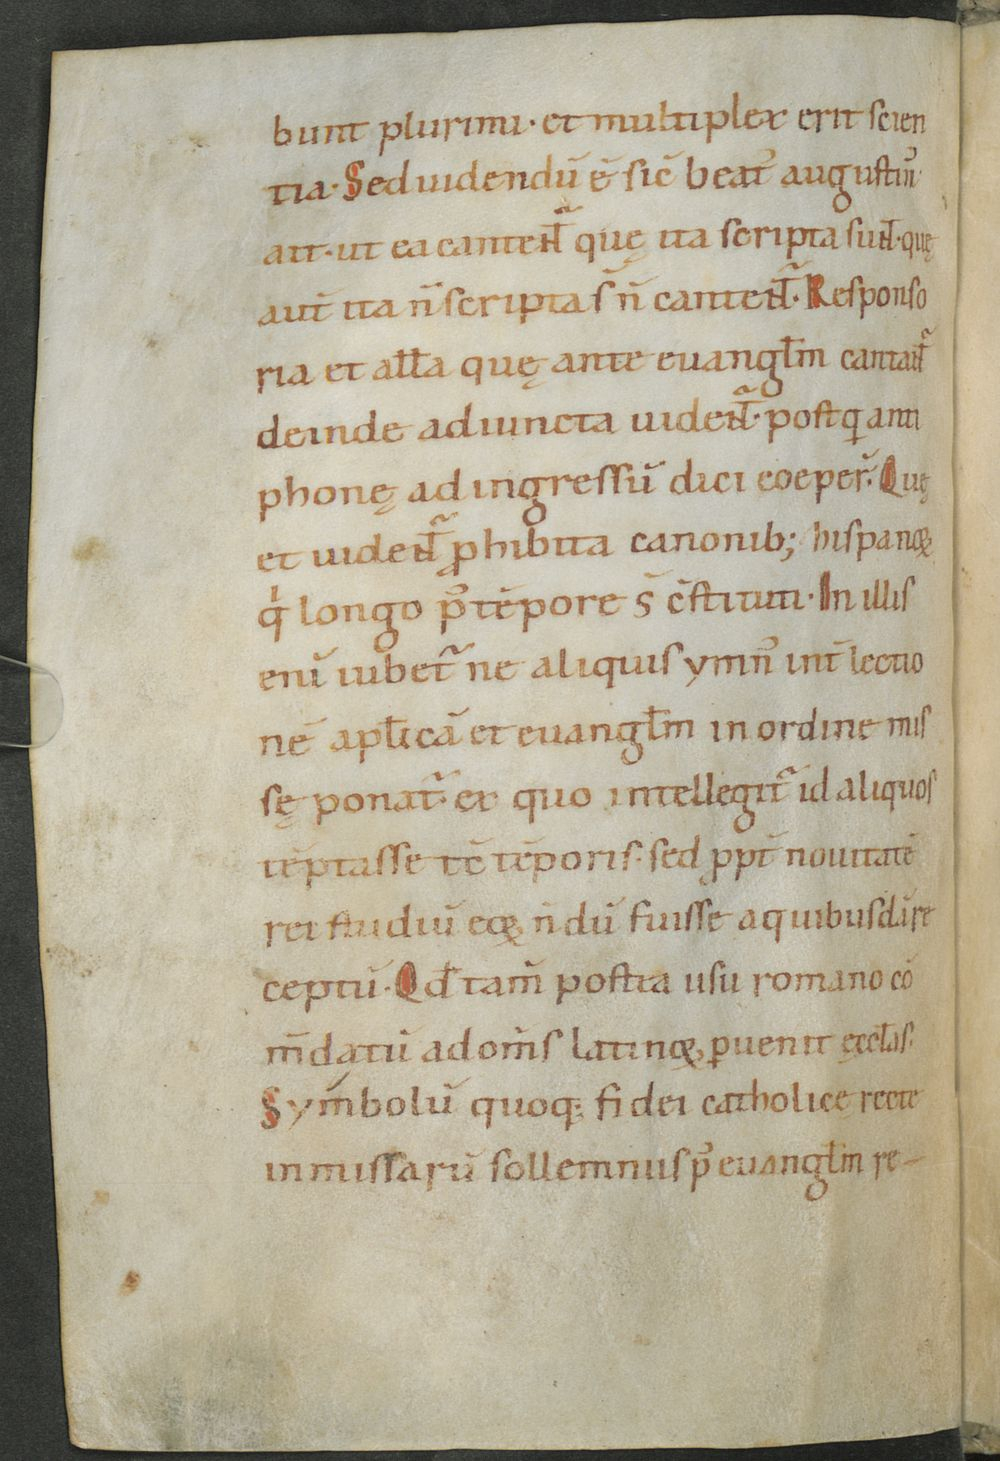 bunt plurimi· et multiplex erit scien
tia· Sed uidendū ē sic̄ beat᾽ augustin᾽·
ait· ut ea canten̄t᷑ quę ita scripta sun̄t· quę
aut̄ ita n̄ scripta s̄ n̄ canten̄t᷑· Responso
ria et all̄a quę ante euangl̄m cantan̄t᷑
deinde adiuncta uiden̄t᷑· postq̄ anti
phonę ad ingressū dici coeper̄· Quę
et uiden̄t᷑ ꝓhibita canonib; hispanoꝝ
q̇ longo p᾽ tēpore s̄ c̄stituti· In illis
enī iubet᷑ ne aliquis ymn᾽ int̄ lectio
nē apl̄icā et euangl̄m in ordine mis
sę ponat᷑· ex quo intellegit᷑ id aliquos
tēptasse tc̄ tēporis· sed ꝓpt̄ nouitatē
rei studiū eoꝝ n̄dū fuisse a quibusdā re
ceptū· Qd̄ tam̄ postea usu romano cō
m̄datū ad om̄s latinoꝝ ꝑuenit ęccl̄as·
Symbolū quoq; fidei catholice recte
in missarū sollemniis p᾽ euangl̄m re-